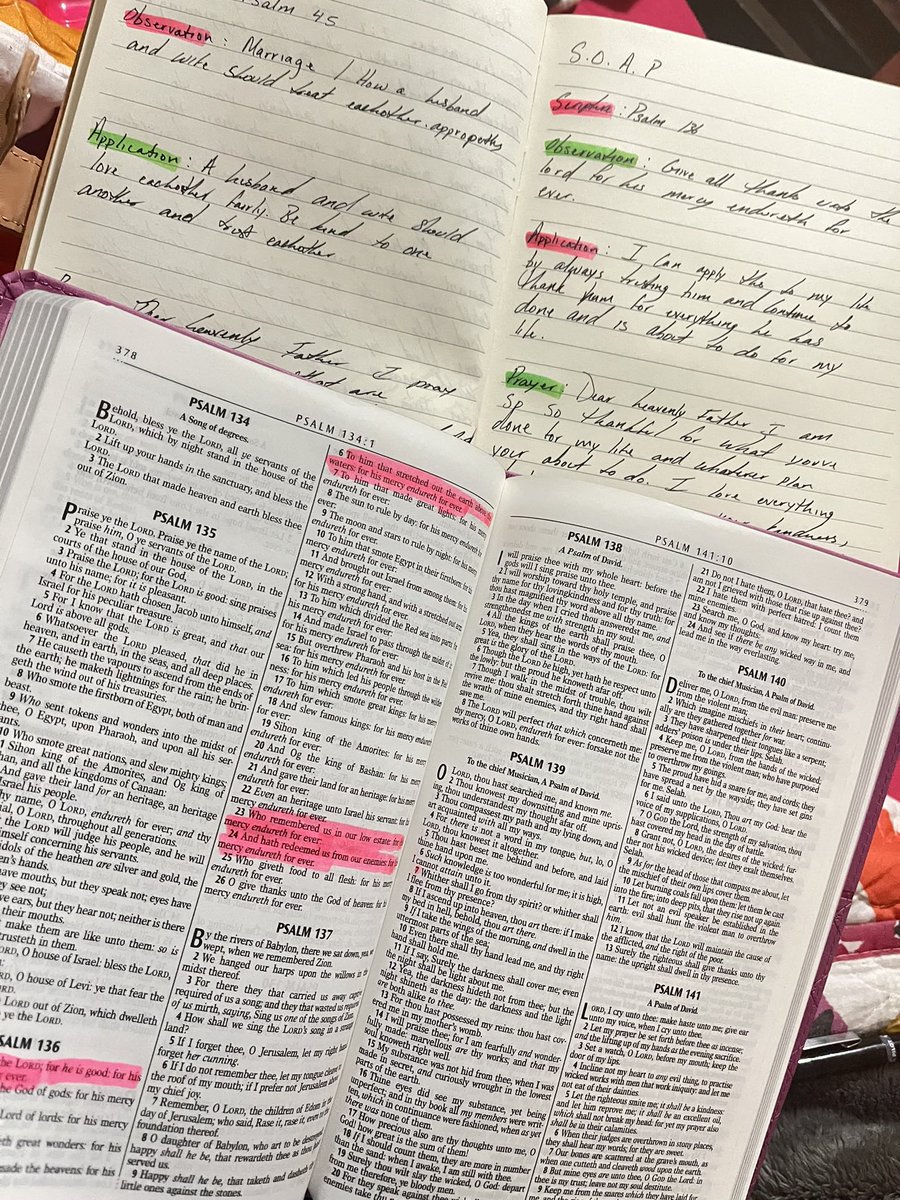 Psalm 45
Observation: Marriage / How a husband
and wife should treat eachother
Application: A husband and wife should
love eachother fairly. Be kind to one
another and trust eachother
heavenly Father I pray
S.O.A.P
Scripture: Psalm 136
Observation: Give all thanks unto the
lord for his mercy endureth for
ever.
Application: I can apply this to my life
by always trusting him and continue to
thank him for everything he has
done and is about to do for my
life.
Prayer: Dear heavenly Father I am
so thankful for what you've
done for my life and whatever plan
your about to do. I love everything
kindness,
378
PSALM 134:1
PSALM 134
A Song of degrees.
Behold, bless ye the LORD, all ye servants of the
LORD, which by night stand in the house of the
LORD.
2 Lift up your hands in the sanctuary, and bless the
LORD.
3 The LORD that made heaven and earth bless thee
out of Zion.
PSALM 135
Praise ye the LORD. Praise ye the name of the LORD;
praise him, O ye servants of the LORD.
2 Ye that stand in the house of the LORD, in the
courts of the house of our God,
3 Praise the LORD; for the LORD is good: sing praises
unto his name; for it is pleasant.
4 For the LORD hath chosen Jacob unto himself, and
Israel for his peculiar treasure.
5 For I know that the LORD is great, and that our
Lord is above all gods.
6 Whatsoever the LORD pleased, that did he in
heaven, and in earth, in the seas, and all deep places.
7 He causeth the vapours to ascend from the ends of
the earth; he maketh lightnings for the rain; he brin-
geth the wind out of his treasuries.
8 Who smote the firstborn of Egypt, both of man and
beast.
9 Who sent tokens and wonders into the midst of
thee, O Egypt, upon Pharaoh, and upon all his ser-
vants.
10 Who smote great nations, and slew mighty kings;
Sihon king of the Amorites, and Og king of
and all the kingdoms of Canaan:
And gave their land for an heritage, an heritage
Israel his people.
Thy name, O LORD, endureth for ever; and thy
O LORD, throughout all generations.
the LORD will judge his people, and he will
himself concerning his servants.
idols of the heathen are silver and gold, the
men's hands.
have mouths, but they speak not; eyes have
they see not;
have ears, but they hear not; neither is there
their mouths.
make them are like unto them: so is
trusteth in them.
LORD, O house of Israel: bless the LORD,
LORD, O house of Levi: ye that fear the
LORD.
LORD out of Zion, which dwelleth
ye the LORD.
PSALM 136
the LORD; for he is good: for his
ever.
the God of gods: for his mercy
Lord of lords: for his mercy
great wonders: for his mercy
made the heavens: for his
6 To him that stretched out the earth above
waters: for his mercy endureth for ever.
7 To him that made great lights: for his
endureth for ever:
8 The sun to rule by day: for his mercy endureth
ever:
9 The moon and stars to rule by night: for his mercy
endureth for ever.
10 To him that smote Egypt in their firstborn: for his
mercy endureth for ever:
11 And brought out Israel from among them: for his
mercy endureth for ever:
12 With a strong hand, and with a stretched out
mercy endureth for ever.
13 To him which divided the Red sea into parts:
his mercy endureth for ever:
14 And made Israel to pass through the midst of
for his mercy endureth for ever:
15 But overthrew Pharaoh and his host in the Red
sea: for his mercy endureth for ever.
16 To him which led his people through the wilder-
ness: for his mercy endureth for ever.
17 To him which smote great kings: for his mercy
endureth for ever:
18 And slew famous kings: for his mercy endureth
for ever:
19 Sihon king of the Amorites: for his mercy
endureth for ever:
20 And Og the king of Bashan: for his mercy
endureth for ever:
21 And gave their land for an heritage: for his mercy
endureth for ever:
22 Even an heritage unto Israel his servant: for his
mercy endureth for ever.
23 Who remembered us in our low estate: for his
mercy endureth for ever:
24 And hath redeemed us from our enemies: for his
mercy endureth for ever.
25 Who giveth food to all flesh: for his mercy
endureth for ever.
26 O give thanks unto the God of heaven: for his
mercy endureth for ever.
PSALM 137
By the rivers of Babylon, there we sat down, yea, we
wept, when we remembered Zion.
2 We hanged our harps upon the willows in the
midst thereof.
3 For there they that carried us away captive
required of us a song; and they that wasted us required
of us mirth, saying, Sing us one of the songs of Zion.
4 How shall we sing the LORD's song in a strange
land?
5 If I forget thee, O Jerusalem, let my right hand
forget her cunning.
6 If I do not remember thee, let my tongue cleave
the roof of my mouth; if I prefer not Jerusalem above
my chief joy.
7 Remember, O LORD, the children of Edom in the
day of Jerusalem; who said, Rase it, rase it, even to the
foundation thereof.
8 O daughter of Babylon, who art to be destroyed;
happy shall he be, that rewardeth thee as thou hast
served us.
9 Happy shall he be, that taketh and dasheth thy
little ones against the stones.
PSALM 141:10
379
PSALM 138
A Psalm of David.
I will praise thee with my whole heart: before the
gods will I sing praise unto thee.
2 I will worship toward thy holy temple, and praise
thy name for thy lovingkindness and for thy truth: for
thou hast magnified thy word above all thy name.
3 In the day when I cried thou answeredst me, and
strengthenedst me with strength in my soul.
4 All the kings of the earth shall praise thee, O
LORD, when they hear the words of thy mouth.
5 Yea, they shall sing in the ways of the LORD: for
great is the glory of the LORD.
6 Though the LORD be high, yet hath he respect unto
the lowly: but the proud he knoweth afar off.
7 Though I walk in the midst of trouble, thou wilt
revive me: thou shalt stretch forth thine hand against
the wrath of mine enemies, and thy right hand shall
save me.
8 The LORD will perfect that which concerneth me:
thy mercy, O LORD, endureth for ever: forsake not the
works of thine own hands.
PSALM 139
To the chief Musician, A Psalm of David.
O LORD, thou hast searched me, and known me.
2 Thou knowest my downsitting and mine upris-
ing, thou understandest my thought afar off.
3 Thou compassest my path and my lying down, and
art acquainted with all my ways.
4 For there is not a word in my tongue, but, lo, O
LORD, thou knowest it altogether.
5 Thou hast beset me behind and before, and laid
thine hand upon me.
6 Such knowledge is too wonderful for me; it is high,
I cannot attain unto it.
7 Whither shall I go from thy spirit? or whither shall
I flee from thy presence?
8 If I ascend up into heaven, thou art there: if I make
my bed in hell, behold, thou art there.
9 If I take the wings of the morning, and dwell in the
uttermost parts of the sea;
10 Even there shall thy hand lead me, and thy right
hand shall hold me.
11 If I say, Surely the darkness shall cover me; even
the night shall be light about me.
12 Yea, the darkness hideth not from thee; but the
night shineth as the day: the darkness and the light
are both alike to thee.
13 For thou hast possessed my reins: thou hast cov-
ered me in my mother's womb.
14 I will praise thee; for I am fearfully and wonder-
fully made: marvellous are thy works; and that my
soul knoweth right well.
15 My substance was not hid from thee, when I was
made in secret, and curiously wrought in the lowest
parts of the earth.
16 Thine eyes did see my substance, yet being
unperfect; and in thy book all my members were writ-
ten, which in continuance were fashioned, when as yet
there was none of them.
17 How precious also are thy thoughts unto me, O
God! how great is the sum of them!
18 If I should count them, they are more in number
than the sand: when I awake, I am still with thee.
19 Surely thou wilt slay the wicked, O God: depart
from me therefore, ye bloody men.
20 For they speak against thee
enemies take
21 Do not I hate them, O LORD, that hate thee? and
am not I grieved with those that rise up against thee?
22 I hate them with perfect hatred: I count them
mine enemies.
23 Search me, O God, and know my heart: try me,
and know my thoughts:
24 And see if there be any wicked way in me, and
lead me in the way everlasting.
PSALM 140
To the chief Musician, A Psalm of David.
Deliver me, O LORD, from the evil man: preserve me
from the violent man;
2 Which imagine mischiefs in their heart; continu-
ally are they gathered together for war.
3 They have sharpened their tongues like a serpent;
adders' poison is under their lips. Selah.
4 Keep me, O LORD, from the hands of the wicked;
preserve me from the violent man; who have purposed
to overthrow my goings.
5 The proud have hid a snare for me, and cords; they
have spread a net by the wayside; they have set gins
for me. Selah.
6 I said unto the LORD, Thou art my God: hear the
voice of my supplications, O LORD.
7 O GOD the Lord, the strength of my salvation, thou
hast covered my head in the day of battle.
8 Grant not, O LORD, the desires of the wicked: fur-
ther not his wicked device; lest they exalt themselves.
Selah.
9 As for the head of those that compass me about, let
the mischief of their own lips cover them.
10 Let burning coals fall upon them: let them be cast
into the fire; into deep pits, that they rise not up again.
11 Let not an evil speaker be established in the
earth: evil shall hunt the violent man to overthrow
him.
12 I know that the LORD will maintain the cause of
the afflicted, and the right of the poor.
13 Surely the righteous shall give thanks unto thy
name: the upright shall dwell in thy presence.
PSALM 141
A Psalm of David.
LORD, I cry unto thee: make haste unto me; give ear
unto my voice, when I cry unto thee.
2 Let my prayer be set forth before thee as incense;
and the lifting up of my hands as the evening sacrifice.
3 Set a watch, O LORD, before my mouth; keep the
door of my lips.
4 Incline not my heart to any evil thing, to practise
wicked works with men that work iniquity: and let me
not eat of their dainties.
5 Let the righteous smite me; it shall be a kindness:
and let him reprove me; it shall be an excellent oil,
which shall not break my head: for yet my prayer also
shall be in their calamities.
6 When their judges are overthrown in stony places,
they shall hear my words; for they are sweet.
7 Our bones are scattered at the grave's mouth, as
when one cutteth and cleaveth wood upon the earth.
8 But mine eyes are unto thee, O GOD the Lord: in
thee is my trust; leave not my soul destitute.
9 Keep me from the snares which they have laid for